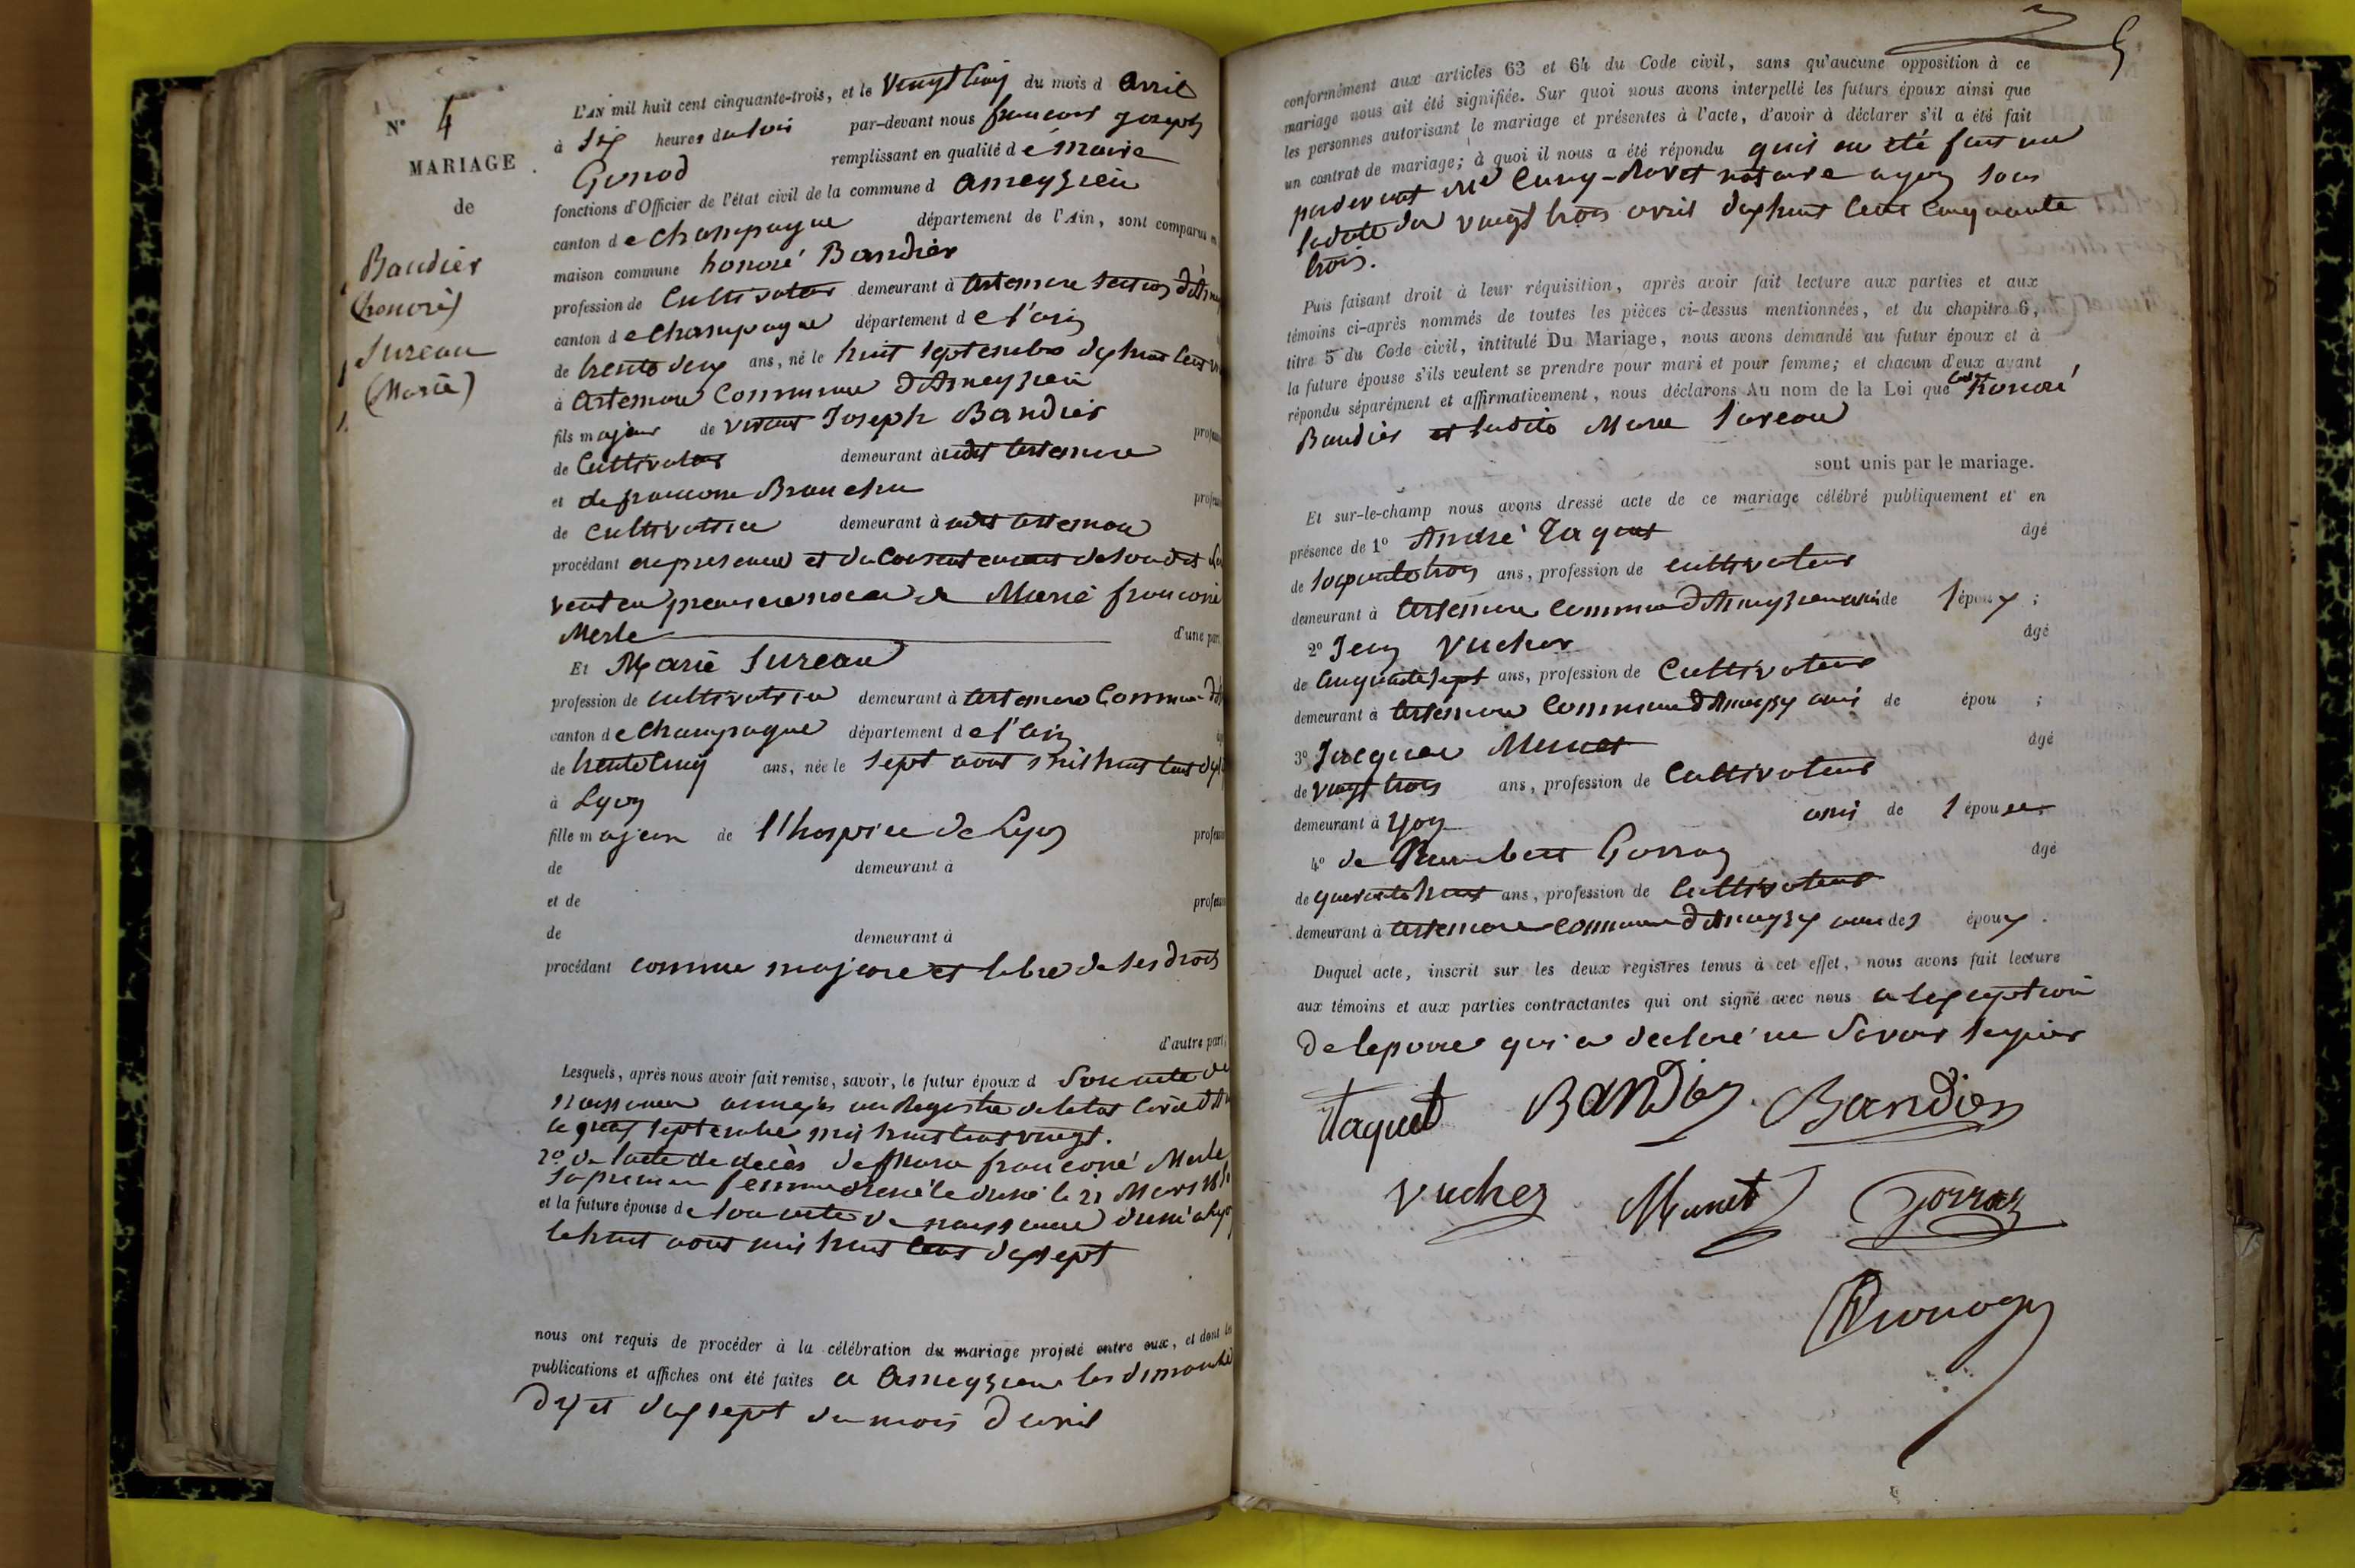 N° 4
MARIAGE
de
Baudier
(honoré)
Sureau
(Marie)
L'AN mil huit cent cinquante-trois, et le vingt cinq du mois d avril
à six heures du soir par-devant nous françois joseph
Gonod remplissant en qualité de maire
fonctions d'Officier de l'état civil de la commune d ameyzieu
canton de champagne département de l'Ain, sont comparus en
maison commune honoré Baudier
profession de Cultivateur demeurant à artemare section d'Am
canton de champagne département de l'ain
de trente deux ans, né le huit septembre dix huit cent
à artemare Commune d'Ameyzieu
fils majeur de vivant Joseph Baudier profes
de Cultivateur demeurant à udit artemare
et de francoise Branche profes
de cultivatrice demeurant à udit artemare
procédant en presence et du Consentement de son dit
veuf en premiere noce de Marie francoise
Merle d'une part
Et Marie Sureau
profession de cultivatrice demeurant à artemare Commune
canton de champagne département de l'ain
de trente cinq ans, née le sept aout mil huit cent
à Lyon
fille majeure de l'hospice de Lyon profess
de demeurant à
et de profess
de demeurant à
procédant comme majeure et libre de ses droits
d'autre part;
Lesquels, après nous avoir fait remise, savoir, le futur époux d son acte de
naissance au Registre de letat civil
le neuf septembre mil huit cent vingt.
2° de l'acte de décès de Marie francoise Merle
sa premiere femme le 21 Mars
et la future épouse de son acte de naissance
le huit aout mil huit cent dix sept
nous ont requis de procéder à la célébration du mariage projeté entre eux, et dont les
publications et affiches ont été faites a ameyzieu les dimanche
dix et dix sept du mois d'avril
conformément aux articles 63 et 64 du Code civil, sans qu'aucune opposition à ce
mariage nous ait été signifiée. Sur quoi nous avons interpellé les futurs époux ainsi que
les personnes autorisant le mariage et présentes à l'acte, d'avoir à déclarer s'il a été fait
un contrat de mariage; à quoi il nous a été répondu quil en eté fait un
pardevant notaire a yon sous
la date du vingt trois avril dix huit cent cinquante
trois.
Puis faisant droit à leur réquisition, après avoir fait lecture aux parties et aux
témoins ci-après nommés de toutes les pièces ci-dessus mentionnées, et du chapitre 6,
titre 5 du Code civil, intitulé Du Mariage, nous avons demandé au futur époux et à
la future épouse s'ils veulent se prendre pour mari et pour femme; et chacun d'eux ayant
répondu séparément et affirmativement, nous déclarons Au nom de la Loi que honoré
Baudier et ladite Marie Sureau
sont unis par le mariage.
Et sur-le-champ nous avons dressé acte de ce mariage célébré publiquement et en
présence de 1° André Taquet âgé
de soixante trois ans, profession de cultivateur
demeurant à artemare commune d'Ameyzieu ami de l époux;
2° Jean Vucher âgé
de cinquante sept ans, profession de Cultivateur
demeurant à artemare commune ami de épou ;
3° Jacques Munet âgé
de vingt trois ans, profession de Cultivateur
demeurant à yon ami de l épouse
4° de Humbert Gorraz âgé
de quarante huit ans, profession de Cultivateur
demeurant à artemare commune époux.
Duquel acte, inscrit sur les deux registres tenus à cet effet, nous avons fait lecture
aux témoins et aux parties contractantes qui ont signé avec nous a lexception
de lepouse qui a declaré ne savoir signer
Taquet Bandier Bandier
Vucher Munet Gorraz